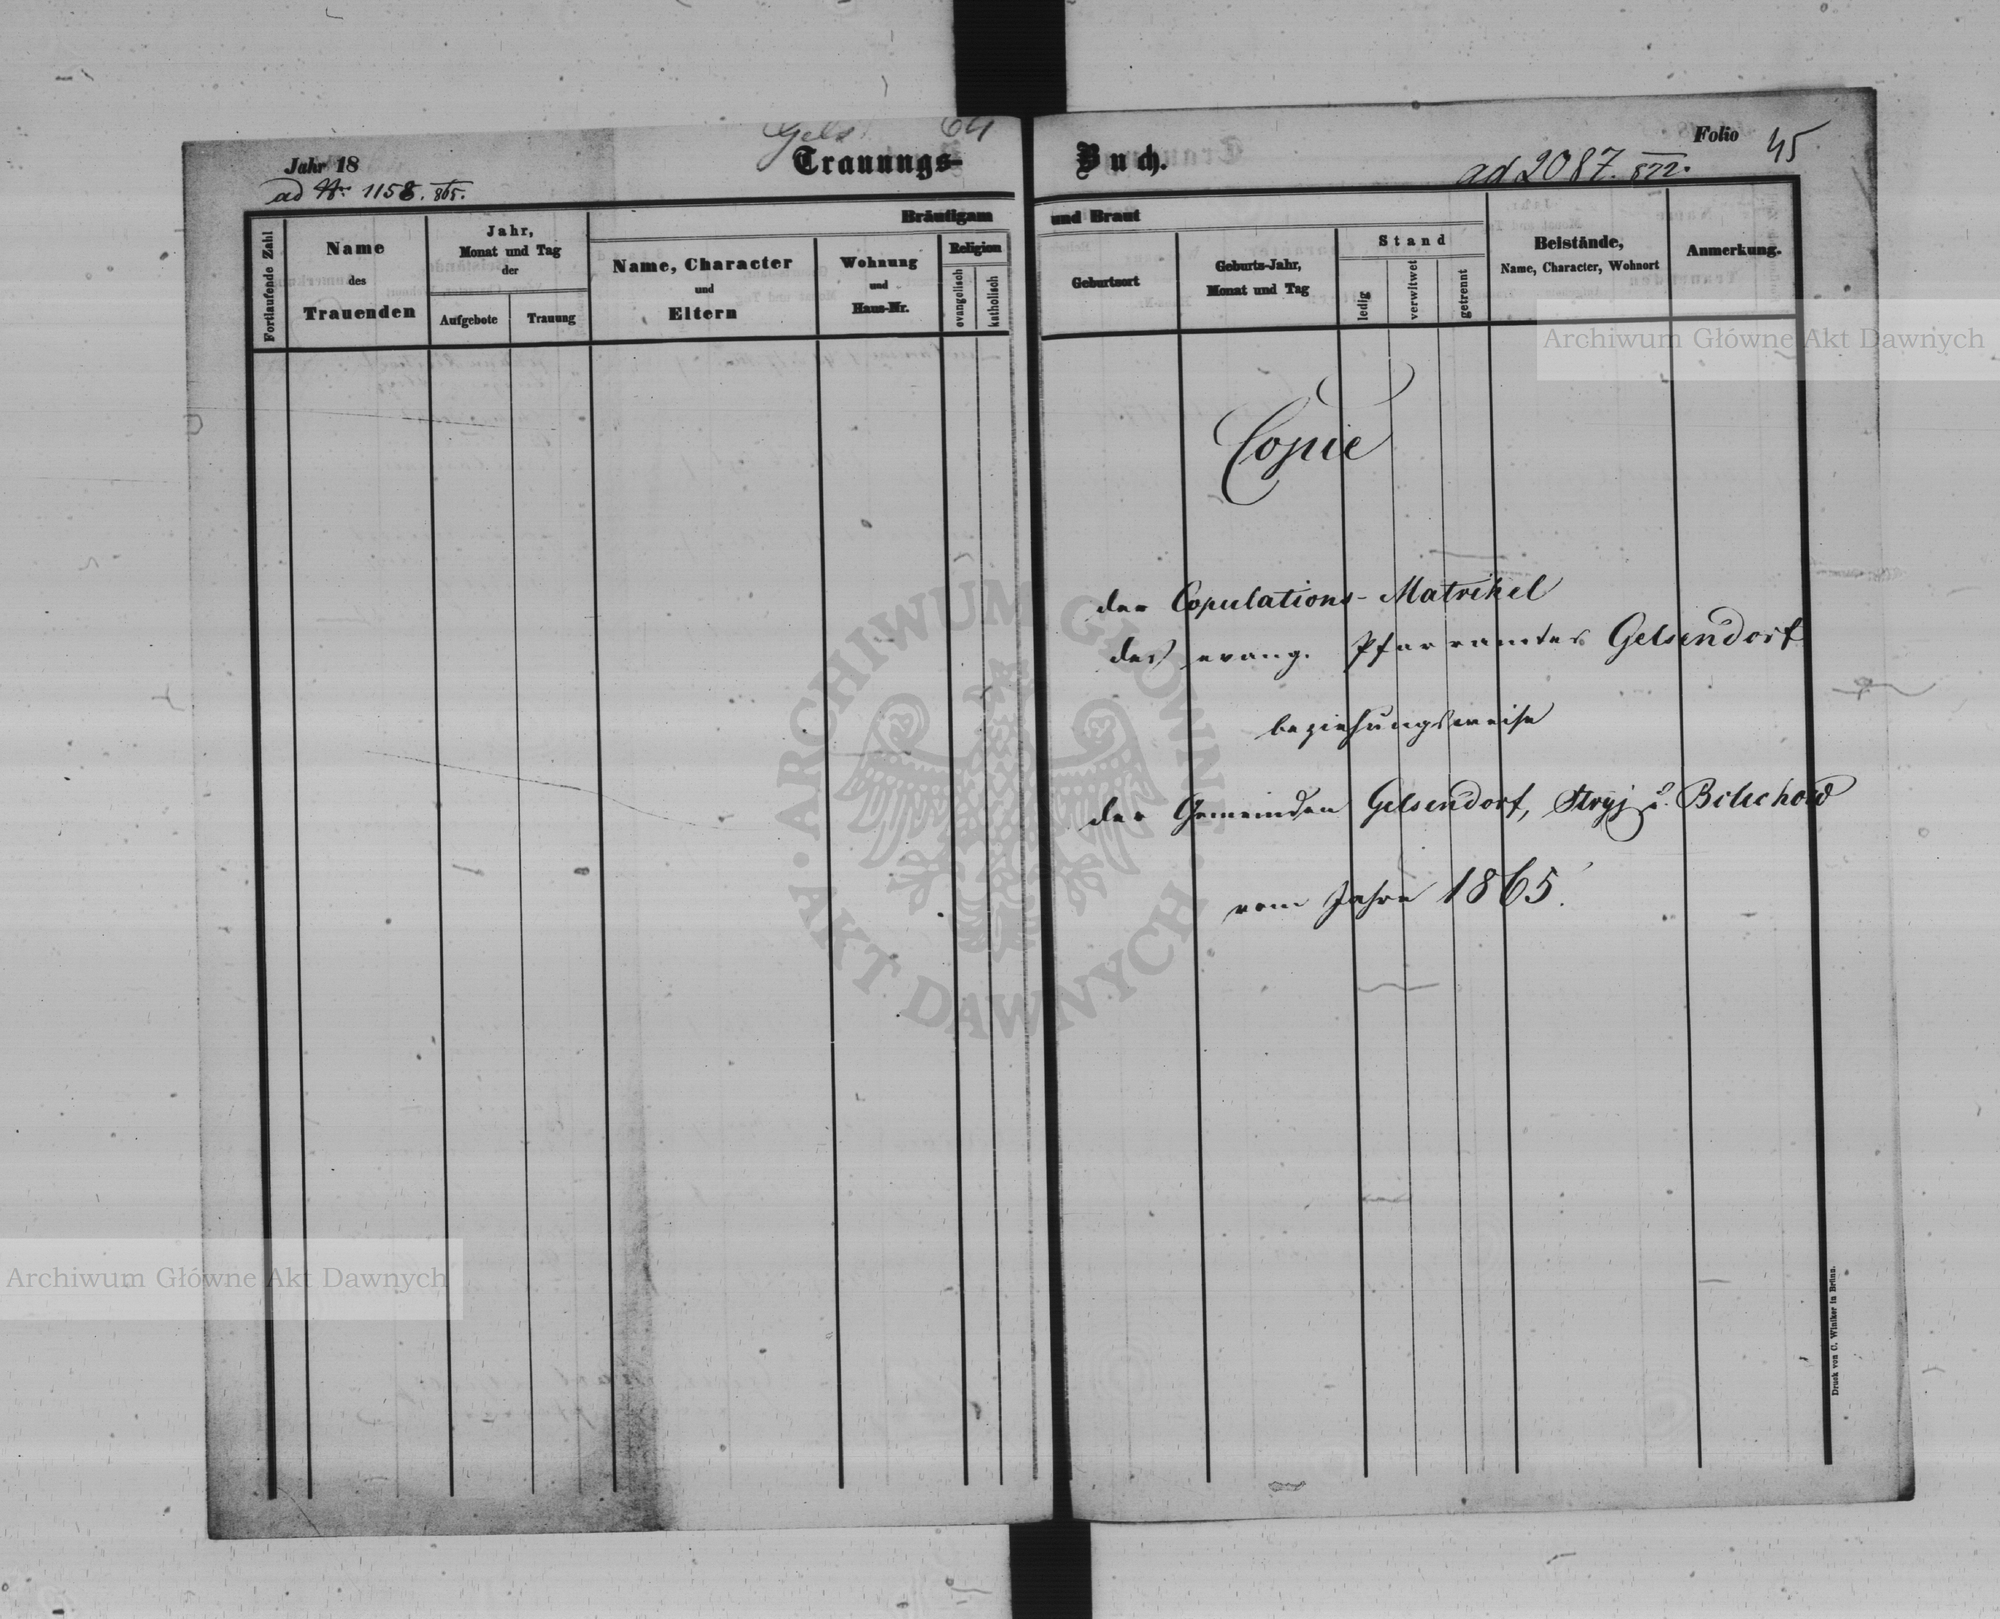 Gels 64
Jahr 18
Trauungs-
ad Nr. 1158. 865.
Fortlaufende Zahl
Name
des
Trauenden
Jahr,
Monat und Tag
der
Aufgebote
Trauung
Bräutigam
Name, Character
und
Eltern
Wohnung
und
Haus-Nr.
Religion
evangelisch
katholisch
Buch.
Folio 45
ad 2087. 872.
und Braut
Geburtsort
Geburts-Jahr,
Monat und Tag
Stand
ledig
verwitwet
getrennt
Beistände,
Name, Character, Wohnort
Anmerkung.
Copie
der Copulations-Matrikel
des evang. Pfarramtes Gelsendorf
beziehungsweise
der Gemeinden Gelsendorf, Stryj u. Bolechow
vom Jahre 1865.
Druck von C. Winiker in Brünn.
Archiwum Główne Akt Dawnych
ARCHIWUM GŁÓWNE · AKT DAWNYCH ·
Archiwum Główne Akt Dawnych